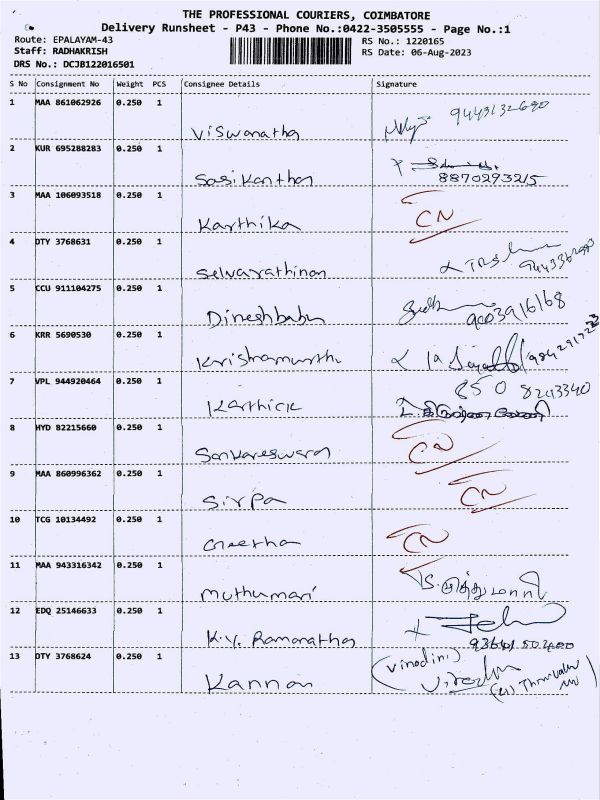 THE PROFESSIONAL COURIERS, COIMBATORE
Delivery Runsheet - P43 - Phone No.:0422-3505555 - Page No.:1
Route: EPALAYAM-43 RS No.: 1220165
Staff: RADHAKRISH RS Date: 06-Aug-2023
DRS No.: DCJB122016501
S No Consignment No Weight PCS Consignee Details Signature
1 MAA 861062926 0.250 1
Viswanathan
2 KUR 695288283 0.250 1
Sasikanthan 8870293215
3 MAA 106093518 0.250 1
Karthika CN
4 DTY 3768631 0.250 1
Selvarathinam
5 CCU 911104275 0.250 1
Dineshbabu 9003916168
6 KRR 5690530 0.250 1
Krishnamurthi
7 VPL 944920464 0.250 1 850 8243340
Karthick
8 HYD 82215660 0.250 1
Sankareswaran CN
9 MAA 860996362 0.250 1
Sirpa CN
10 TCG 10134492 0.250 1
Geetha CN
11 MAA 943316342 0.250 1
Muthumari
12 EDQ 25146633 0.250 1
K.V. Ramanathan
13 DTY 3768624 0.250 1 (Vinodini)
Kannan